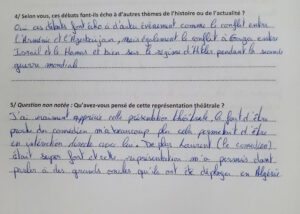 4/ Selon vous, ces débats font-ils écho à d'autres thèmes de l'histoire ou de l'actualité ?
Oui ces débats font écho à d'autre évènement comme le conflit entre
l'Arménie et l'Azerbaïdjan, mais également le conflit à Gaza, entre
Israël et le Hamas et bien sur le régime d'Hitler pendant la seconde
guerre mondiale.
5/ Question non notée : Qu'avez-vous pensé de cette représentation théâtrale ?
J'ai vraiment apprécié cette présentation théâtrale, le fait d'être
proche du comédien m'a beaucoup plu cela permettait d'être
en intéraction directe avec lui. De plus Laurent (le comédien)
était super fort et cette représentation m'a permis dont
parler à des grands oncles qu'ils ont été déployer en Algérie